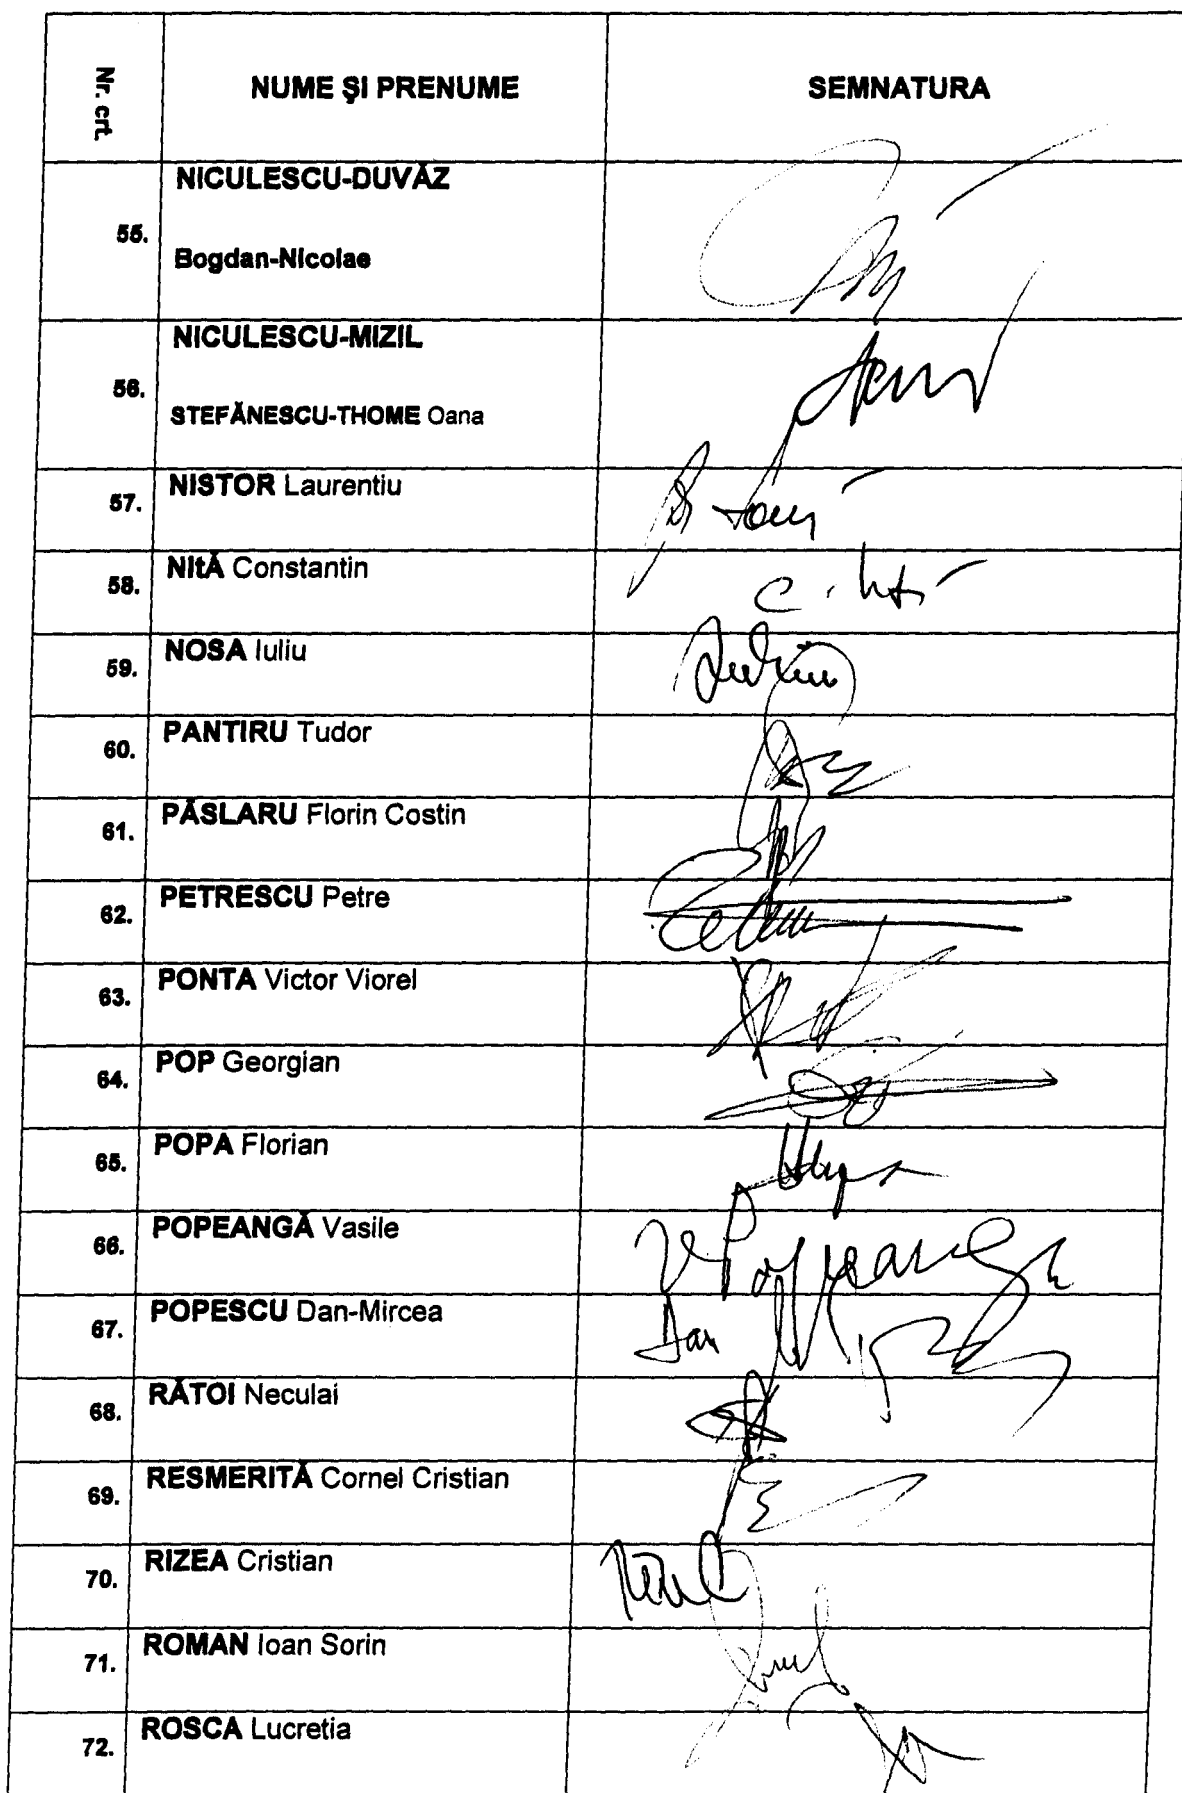 Nr. crt. NUME ŞI PRENUME SEMNATURA
NICULESCU-DUVĂZ
55.
Bogdan-Nicolae
NICULESCU-MIZIL
56.
STEFĂNESCU-THOME Oana
57. NISTOR Laurentiu
58. NItĂ Constantin
59. NOSA Iuliu
60. PANTIRU Tudor
61. PĂSLARU Florin Costin
62. PETRESCU Petre
63. PONTA Victor Viorel
64. POP Georgian
65. POPA Florian
66. POPEANGĂ Vasile V Popeanga
67. POPESCU Dan-Mircea Dan
68. RĂTOI Neculai
69. RESMERITĂ Cornel Cristian
70. RIZEA Cristian
71. ROMAN Ioan Sorin
72. ROSCA Lucretia